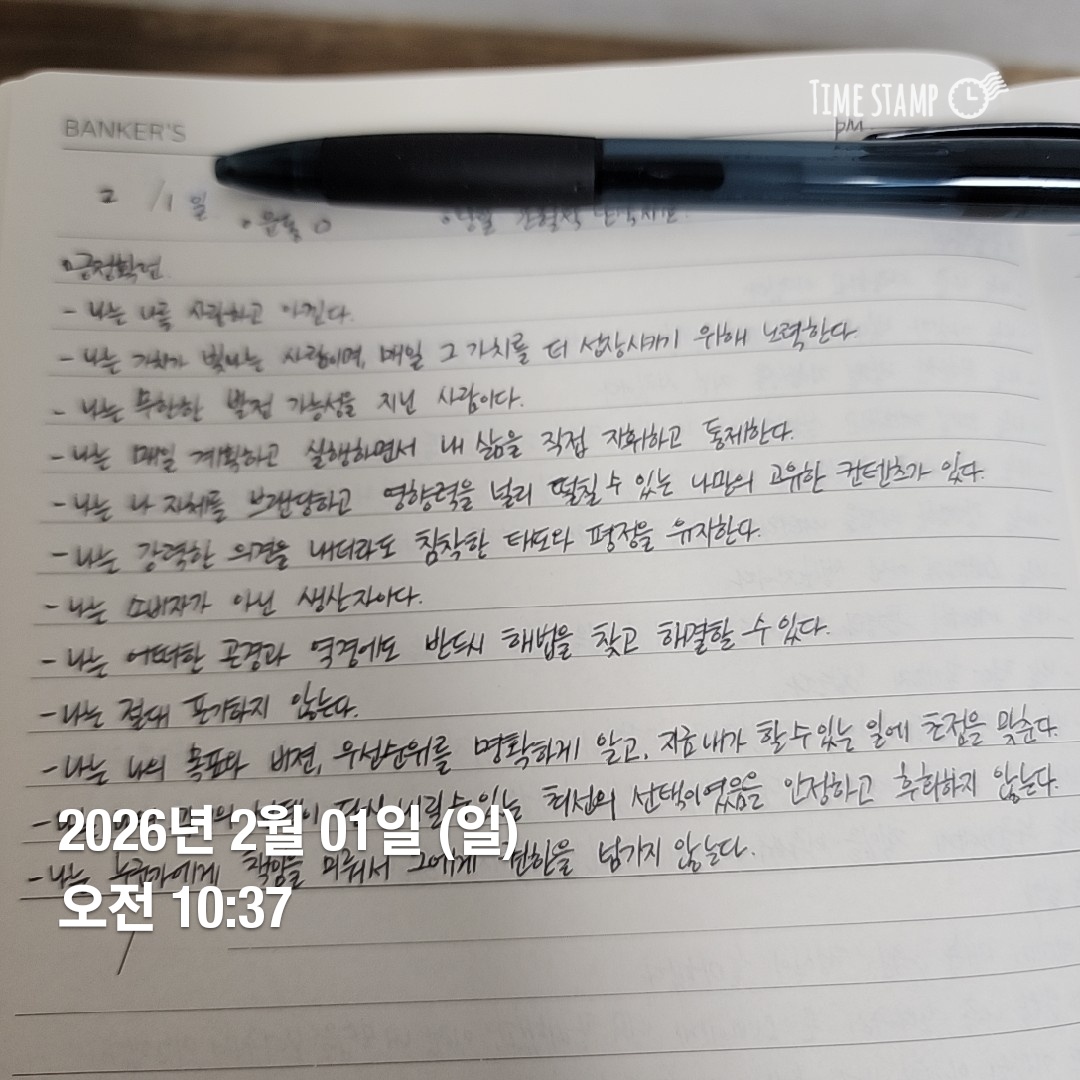 TIME STAMP
BANKER'S
PM
2/1일
긍정확언
- 나는 나를 사랑하고 아낀다.
- 나는 가치가 빛나는 사람이며, 매일 그 가치를 더 성장시키기 위해 노력한다.
- 나는 무한한 발전 가능성을 지닌 사람이다.
- 나는 매일 계획하고 실행하면서 내 삶을 직접 지휘하고 통제한다.
- 나는 나 자체를 브랜딩하고 영향력을 널리 떨칠 수 있는 나만의 고유한 컨텐츠가 있다.
- 나는 강력한 의견을 내더라도 침착한 태도와 평정을 유지한다.
- 나는 소비자가 아닌 생산자이다.
- 나는 어떠한 곤경과 역경에도 반드시 해법을 찾고 해결할 수 있다.
- 나는 절대 포기하지 않는다.
- 나는 나의 목표와 비젼, 우선순위를 명확하게 알고, 지금 내가 할 수 있는 일에 초점을 맞춘다.
- 나는 내릴 수 있는 최선의 선택이였음을 인정하고 후회하지 않는다.
- 나는 누군가에게 책임을 미뤄서 그에게 권한을 넘기지 않는다.
2026년 2월 01일 (일)
오전 10:37